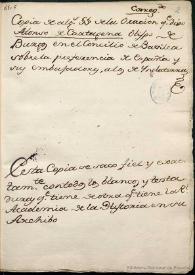 Copia de algs. §§ de la Oracion qe. dijo
Alonso de Cartagena Obispo de
Burgos en el Concilio de Basilea
sobre la preferencia de España y
sus embajadores, a los de Inglaterra
Esta Copia se saco fiel y exac
tamte. con todo lo blanco, y testa
duras qe. tiene de otra qe. tiene la Rl.
Academia de la Historia en su
Archibo